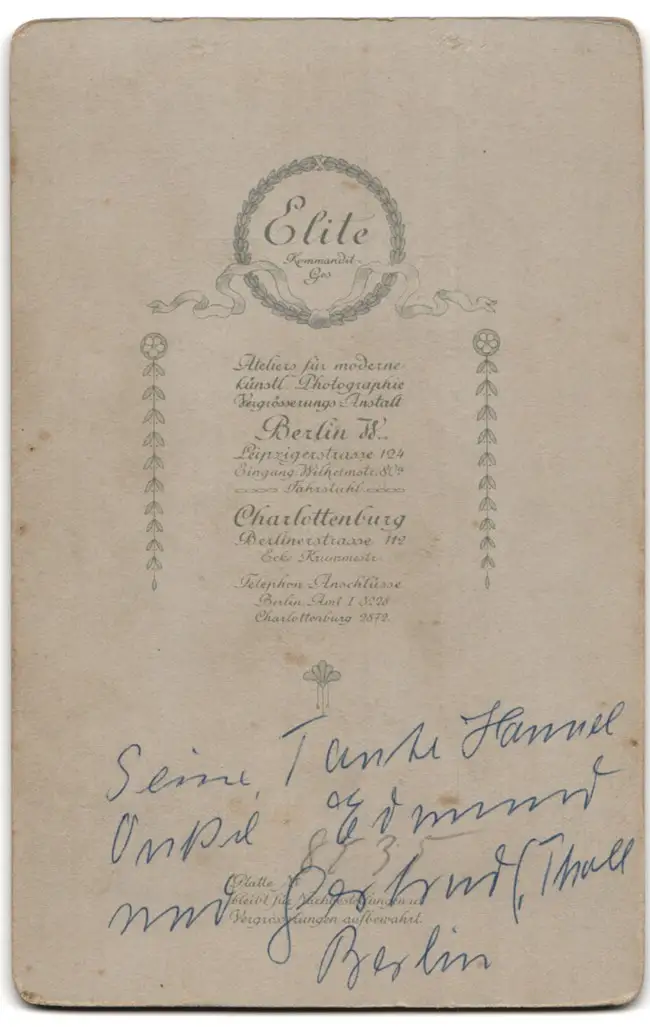 Elite
Kommandit-
Ges
Ateliers für moderne
künstl Photographie
Vergrösserungs-Anstalt
Berlin W.
Leipzigerstrasse 124
Eingang Wilhelmstr.
Fahrstuhl
Charlottenburg
Berlinerstrasse 112
Ecke Krummestr.
Telephon-Anschlüsse
Berlin Amt I
Charlottenburg 2872.
Seine Tante
Onkel Edmund
Platte
bleibt für Nachbestellungen u.
und Gertrud
Vergrösserungen aufbewahrt.
Berlin